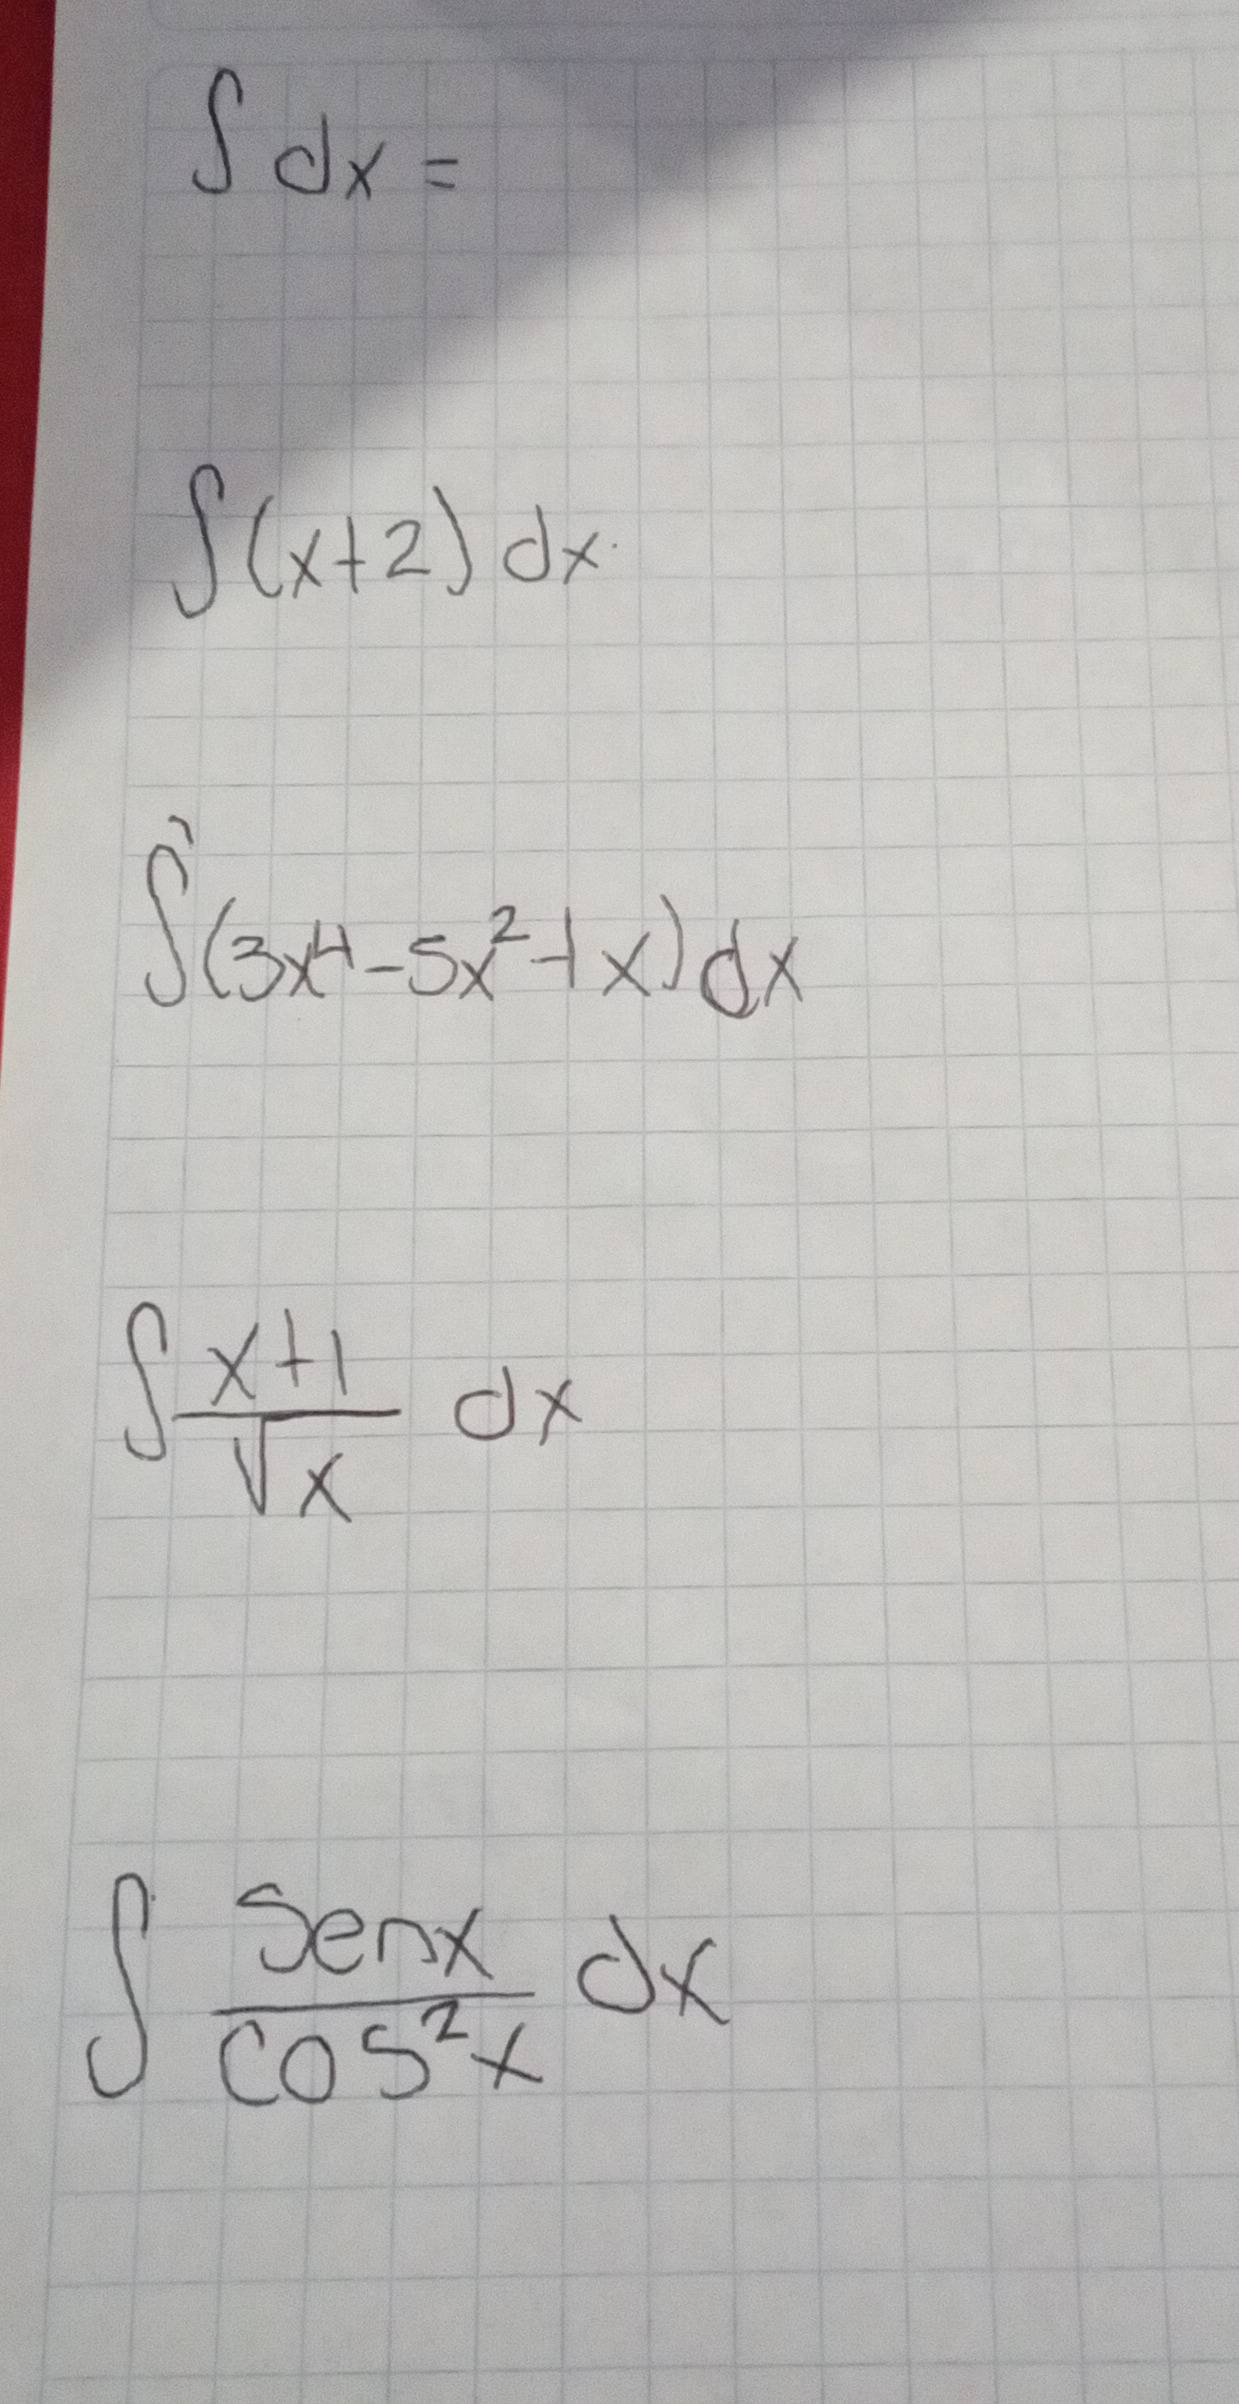 ∫ dx =
∫(x+2) dx
∫(3x⁴-5x²+x) dx
∫ x+1/√x dx
∫ senx/cos²x dx